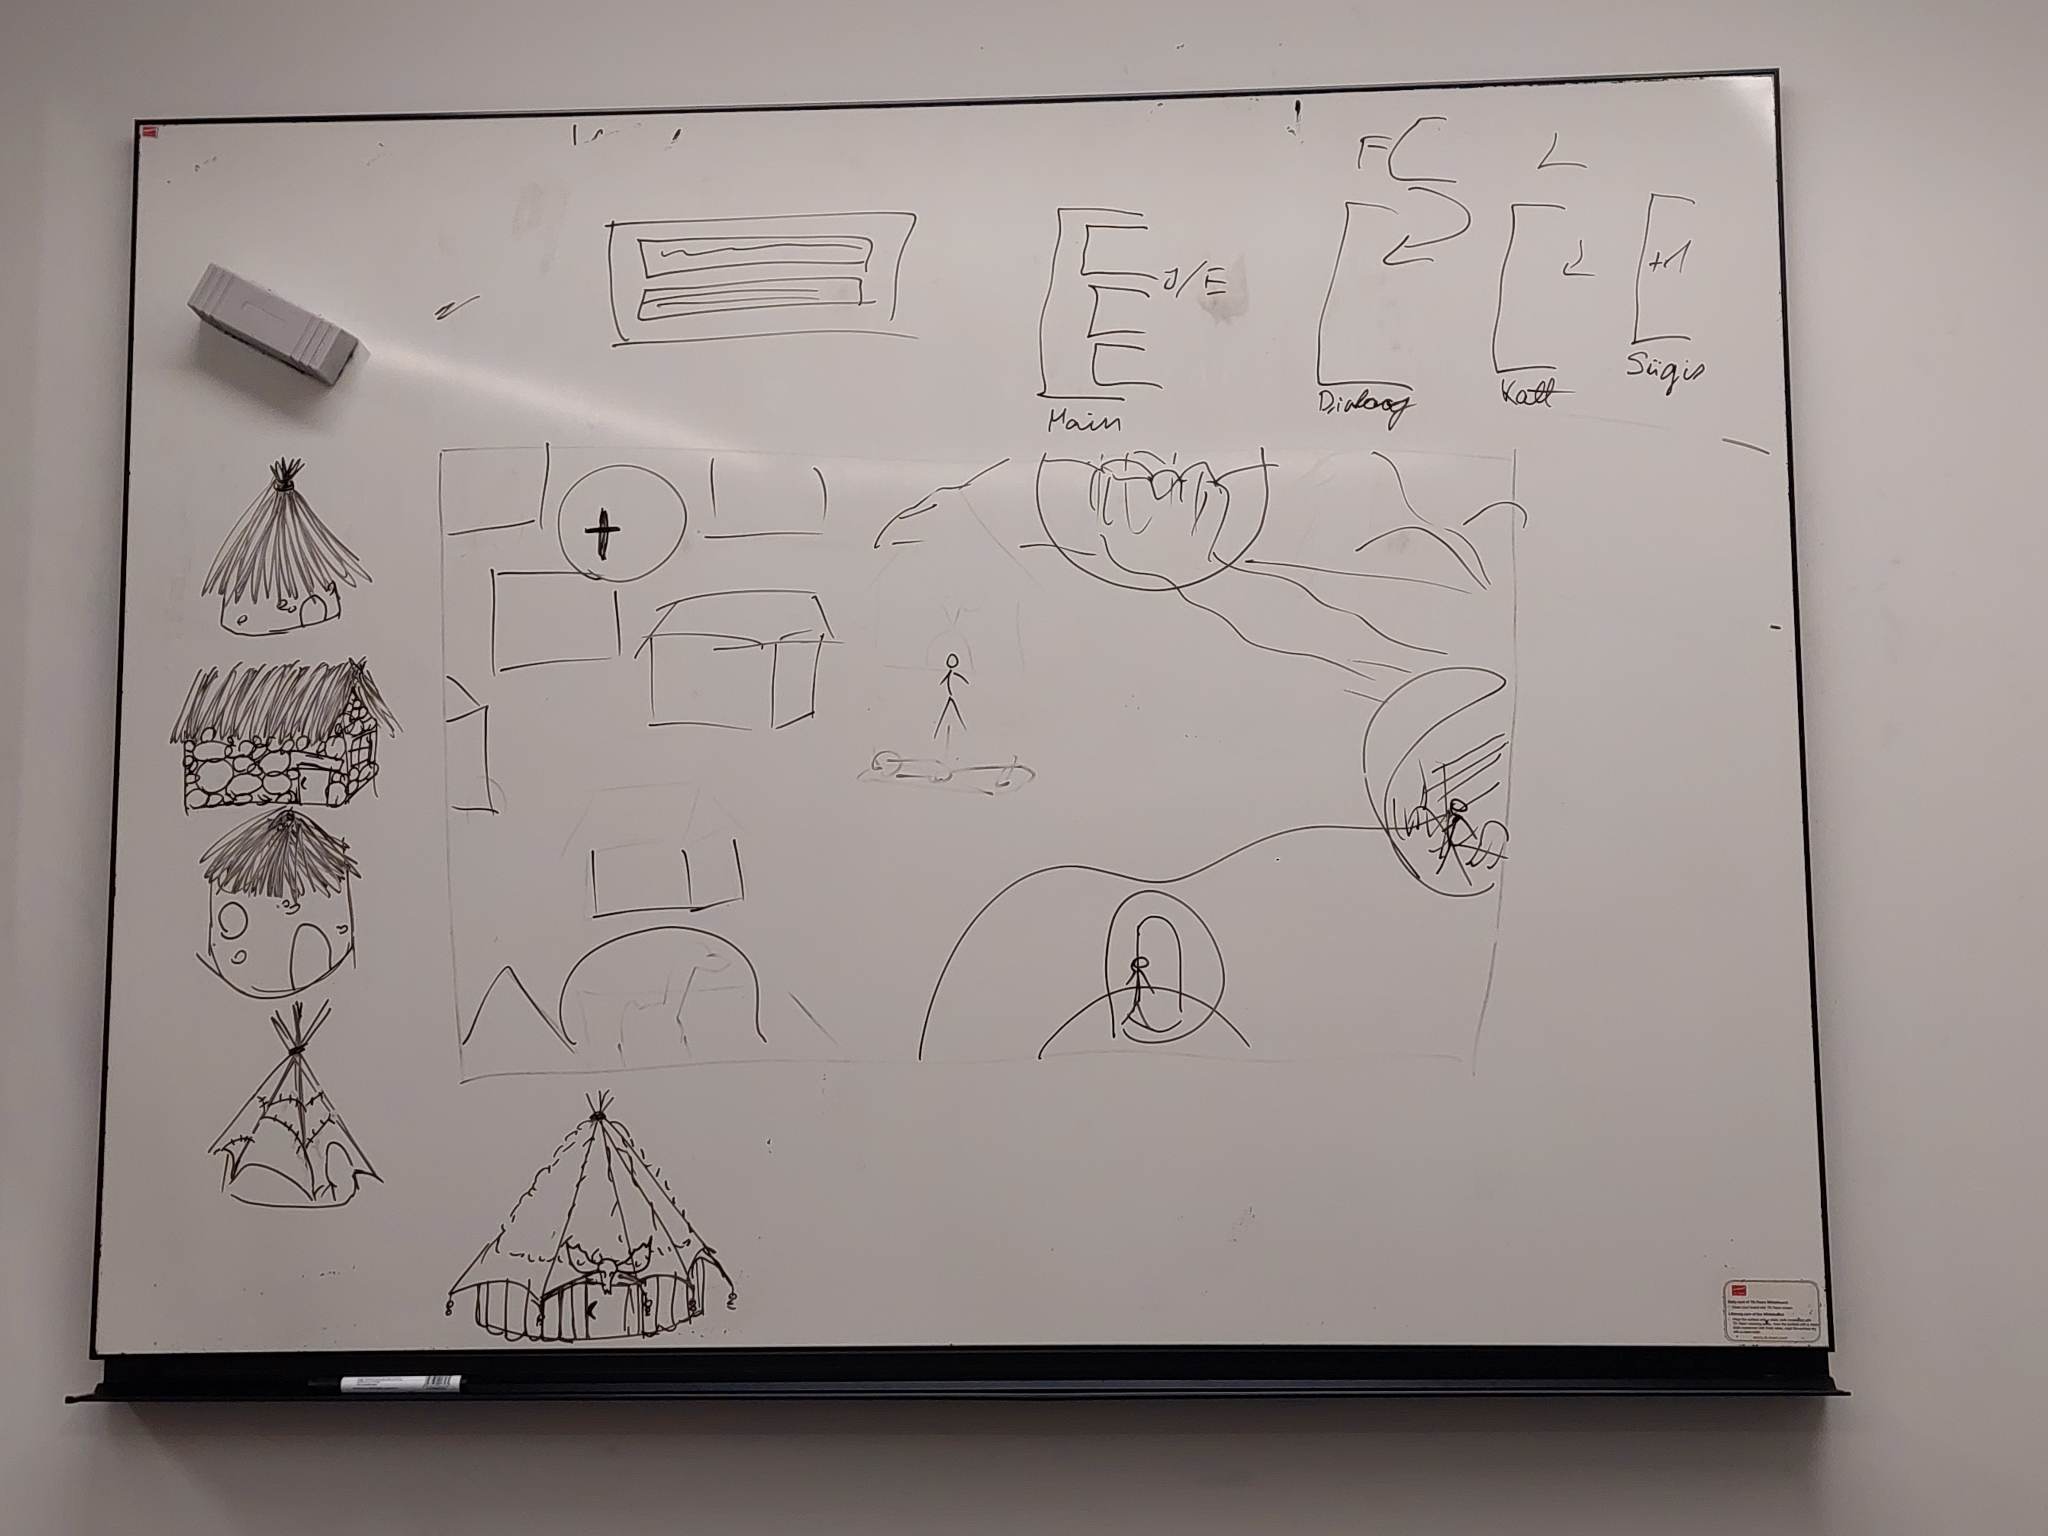 FC L
J/E
+1
Main
Dialoog
Katt
Sügis